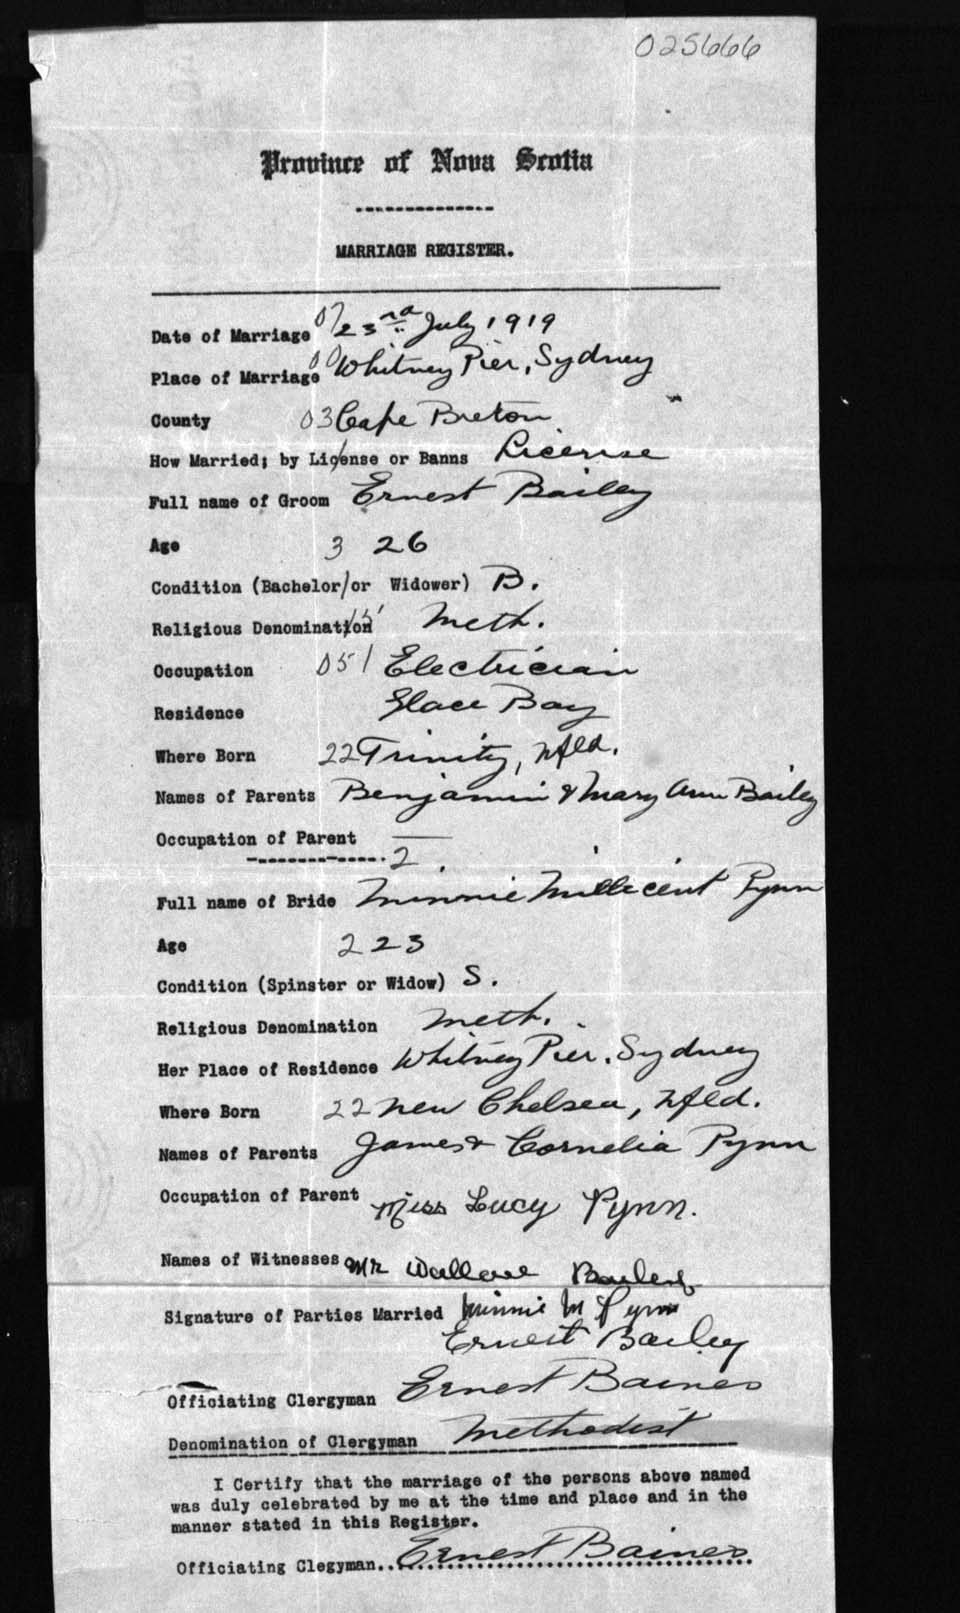 025666
Province of Nova Scotia
MARRIAGE REGISTER.
Date of Marriage 07 23rd July 1919
Place of Marriage 00 Whitney Pier, Sydney
County 03 Cape Breton
How Married; by License or Banns License
Full name of Groom Ernest Bailey
Age 3 26
Condition (Bachelor/or Widower) B.
Religious Denomination Meth.
Occupation 051 Electrician
Residence Glace Bay
Where Born 22 Trinity, Nfld.
Names of Parents Benjamin & Mary Ann Bailey
Occupation of Parent —
2
Full name of Bride Minnie Millicent Pynn
Age 2 23
Condition (Spinster or Widow) S.
Religious Denomination Meth.
Her Place of Residence Whitney Pier, Sydney
Where Born 22 New Chelsea, Nfld.
Names of Parents James & Cornelia Pynn
Occupation of Parent
Miss Lucy Pynn.
Names of Witnesses Mr Wallace Bailey
Signature of Parties Married Minnie M Pynn
Ernest Bailey
Officiating Clergyman Ernest Baines
Denomination of Clergyman Methodist
I Certify that the marriage of the persons above named
was duly celebrated by me at the time and place and in the
manner stated in this Register.
Officiating Clegyman..Ernest Baines